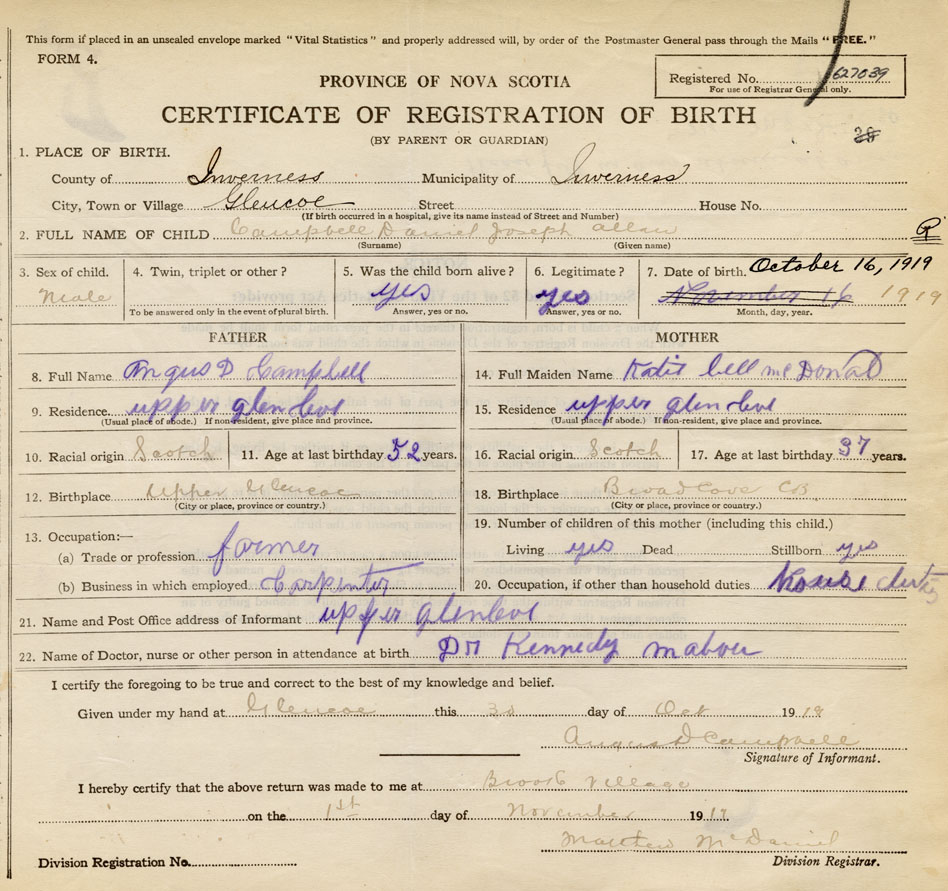 This form if placed in an unsealed envelope marked "Vital Statistics" and properly addressed will, by order of the Postmaster General pass through the Mails "FREE."
FORM 4.
PROVINCE OF NOVA SCOTIA
Registered No. 627039
For use of Registrar General only.
CERTIFICATE OF REGISTRATION OF BIRTH
(BY PARENT OR GUARDIAN)
28
1. PLACE OF BIRTH.
County of Inverness Municipality of Inverness
City, Town or Village Glencoe Street House No.
(If birth occurred in a hospital, give its name instead of Street and Number)
2. FULL NAME OF CHILD Campbell Daniel Joseph Allan
(Surname) (Given name)
3. Sex of child. 4. Twin, triplet or other? 5. Was the child born alive? 6. Legitimate? 7. Date of birth. October 16, 1919
Male yes yes November 16 1919
To be answered only in the event of plural birth. Answer, yes or no. Answer, yes or no. Month, day, year.
FATHER MOTHER
8. Full Name Angus D Campbell 14. Full Maiden Name Katie bell mc Donald
9. Residence upper glencoe 15. Residence upper glencoe
(Usual place of abode.) If non-resident, give place and province. (Usual place of abode.) If non-resident, give place and province.
10. Racial origin Scotch 11. Age at last birthday 52 years. 16. Racial origin Scotch 17. Age at last birthday 37 years.
12. Birthplace Upper Glencoe 18. Birthplace Broad Cove CB
(City or place, province or country.) (City or place, province or country.)
13. Occupation:— 19. Number of children of this mother (including this child.)
(a) Trade or profession farmer Living yes Dead Stillborn yes
(b) Business in which employed Carpinter 20. Occupation, if other than household duties House
21. Name and Post Office address of Informant upper glencoe
22. Name of Doctor, nurse or other person in attendance at birth Dr Kennedy mabou
I certify the foregoing to be true and correct to the best of my knowledge and belief.
Given under my hand at Glencoe this 30 day of Oct 1919
Angus D Campbell
Signature of Informant.
I hereby certify that the above return was made to me at Brook Village
on the 1st day of November 1919
Matthew McDaniel
Division Registration No. Division Registrar.